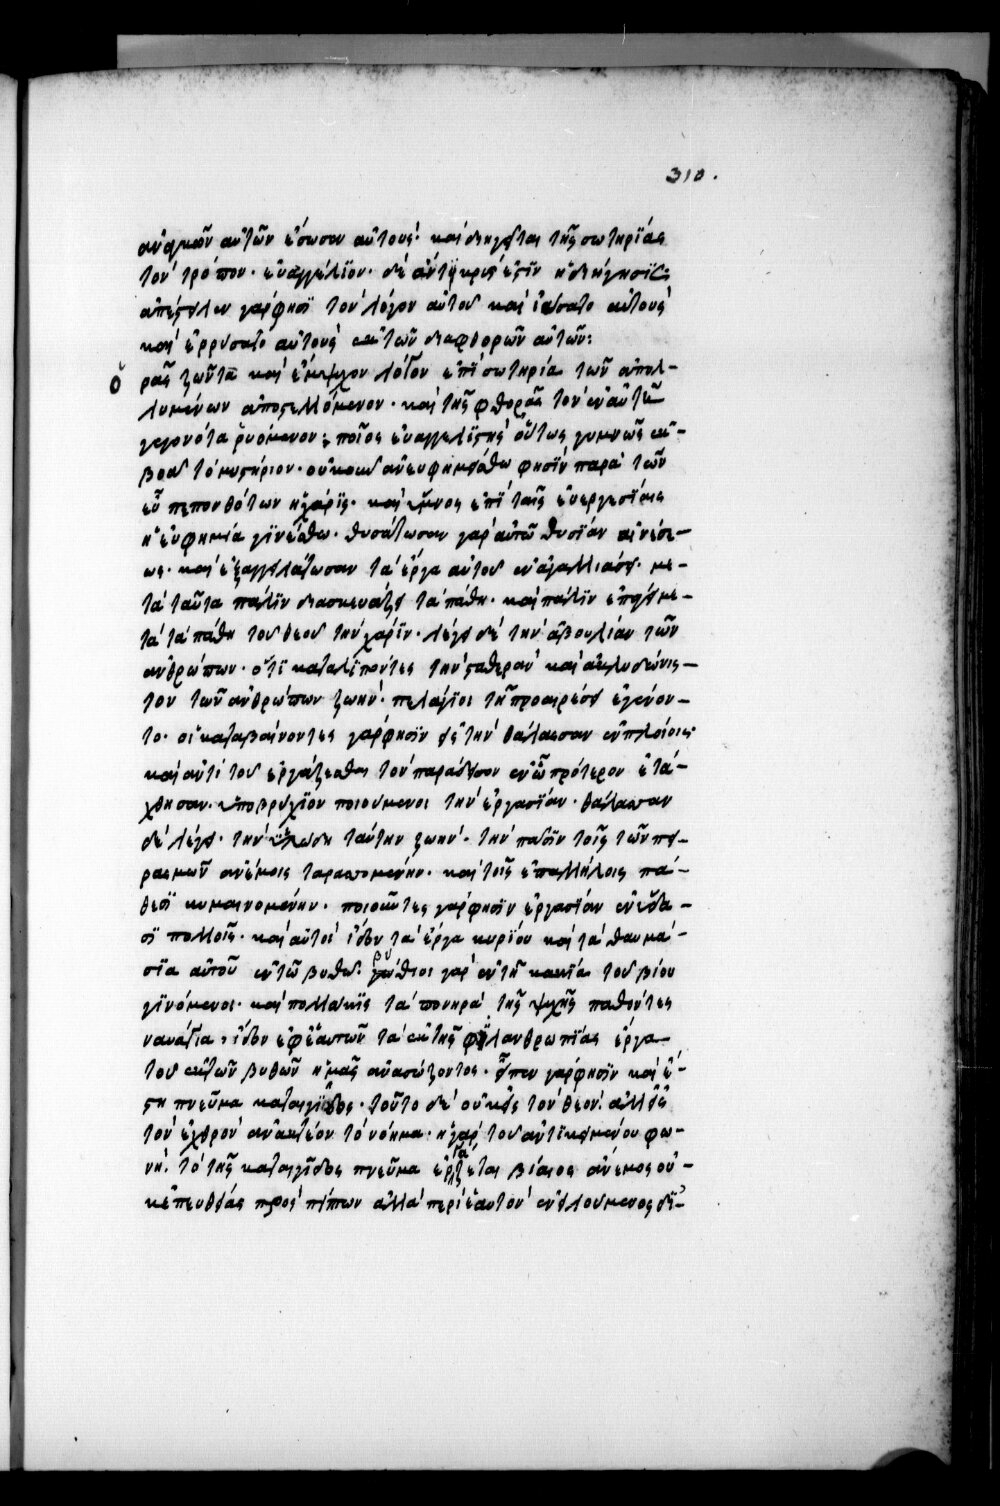 310.
αναγκῶν αὐτῶν ἔσωσεν αὐτούς· καὶ διηγεῖται τῆς σωτηρίας
τὸν τρόπον· εὐαγγέλϊον· δὲ ἄντϊκρύς ἐστϊν ἡ διήγησϊς·
ἀπέστειλεν γάρ φησϊ τὸν λόγον αὐτοῦ καὶ ἰάσατο αὐτοὺς
καὶ ἐρρύσατο αὐτοὺς ἐκ τῶν διαφθορῶν αὐτῶν:
ὁ ρᾷς ζῶντα καὶ ἔμψυχον λόγον ἐπὶ σωτηρία τῶν ἀπολ-
λυμένων ἀποστελλόμενον· καὶ τῆς φθορᾶς τὸν ἐν αὐτῇ
γεγονότα ῥυόμενον· ποῖος εὐαγγελϊστὴς οὕτως γυμνῶς ἐκ-
βοᾷ τὸ μυστήριον· οὐκοῦν ἀνευφημείσθω φησὶν παρὰ τῶν
εὖ πεπονθότων ἡ χάρϊς· καὶ ὕμνος ἐπὶ ταῖς εὐεργεσίαις
ἡ εὐφημία γϊνέσθω· θυσάτωσαν γὰρ αὐτῷ θυσΐαν αἰνέσε-
ως· καὶ ἐξαγγειλάτωσαν τὰ ἔργα αὐτοῦ ἐν ἀγαλλιάσει· με-
τὰ ταῦτα πάλϊν διασκευάζει τὰ πάθη· καὶ πάλϊν ἐπάγει με-
τὰ τὰ πάθη τοῦ θεοῦ τὴν χάρϊν· λέγει δὲ τὴν ἀβουλίαν τῶν
ἀνθρώπων· ὅτϊ καταλϊπόντες τὴν σταθερὰν καὶ ἀκλυδώνισ-
τον τῶν ἀνθρώπων ζωήν· πελάγϊοι τῇ προαιρέσει ἐγένον-
το· οἱ καταβαίνοντες γάρ φησϊν εἰς τὴν θάλασσαν ἐν πλοίοις·
καὶ ἀντὶ τοῦ ἐργάζεσθαι τὸν παράδεισον ἐν ᾧ πρότερον ἐτά-
χθησαν· ὑποβρύχϊον ποιούμενοι τὴν ἐργασΐαν· θάλασσαν
δὲ λέγει· τὴν ὑλώδη ταύτην ζωήν· τὴν πᾶσϊν τοῖς τῶν πει-
ρασμῶν ἀνέμοις ταρασσομένην· καὶ τοῖς ἐπαλλήλοις πά-
θεσϊ κυμαινομένην· ποιοῦντες γάρ φησϊν ἐργασΐαν ἐν ὕδα-
σϊ πολλοῖς· καὶ αὐτοὶ ἴδον τὰ ἔργα κυρΐου καὶ τὰ θαυμά-
σϊα αὐτοῦ ἐν τῷ βυθῷ· βύθιοι γὰρ ἐν τῇ κακΐα τοῦ βίου
γϊνόμενοι· καὶ πολλάκϊς τὰ πονηρὰ τῆς ψυχῆς παθόντες
ναυάγια, ἴδον ἐφ' ἑαυτῶν τὰ ἐκ τῆς φϊλανθρωπΐας ἔργα
τοῦ ἐκ τῶν βυθῶν ἡμᾶς ἀνασώζοντος· εἶπεν γάρ φησϊν καὶ ἔ-
στη πνεῦμα καταιγΐδος· τοῦτο δὲ οὐκ εἰς τὸν θεόν· ἀλλ' εἰς
τὸν ἐχθρὸν ἀνακτέον τὸ νόημα· ἡ γὰρ τοῦ ἀντϊκειμένου φω-
νὴ· τὸ τῆς καταιγῖδος πνεῦμα ἐργάζεται βίαιος ἄνεμος οὐ-
κ ἐπευθείας προσπΐπτων ἀλλὰ περὶ ἑαυτὸν ἐνειλούμενος δΐ-